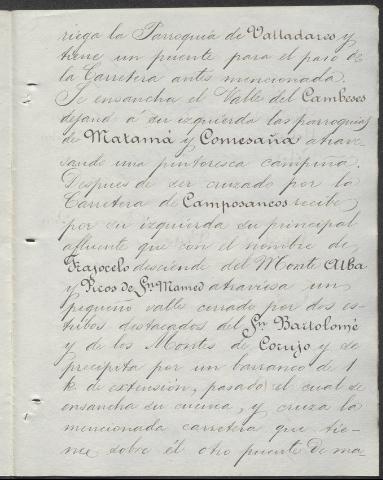 riega la Parroquia de Valladares y
tiene un puente para el paso de
la Carretera antes mencionada.
Se ensancha el Valle del Cambeses
dejando a su izquierda las parroquias
de Matamá y Comesaña atrave
sando una pintoresca campiña.
Despues de ser cruzado por la
Carretera de Camposancos recibe
por su izquierda su principal
afluente que con el nombre de
Frajocelo desciende del Monte Alba
y Picos de Sn. Mamed atraviesa un
pequeño valle cerrado por dos es-
tribos destacados del Sn. Bartolomé
y de los Montes de Corujo y se
precipita por un barranco de 1
k. de extensión, pasado el cual se
ensancha su cuenca, y cruza la
mencionada carretera que tie-
ne sobre él otro puente de ma-